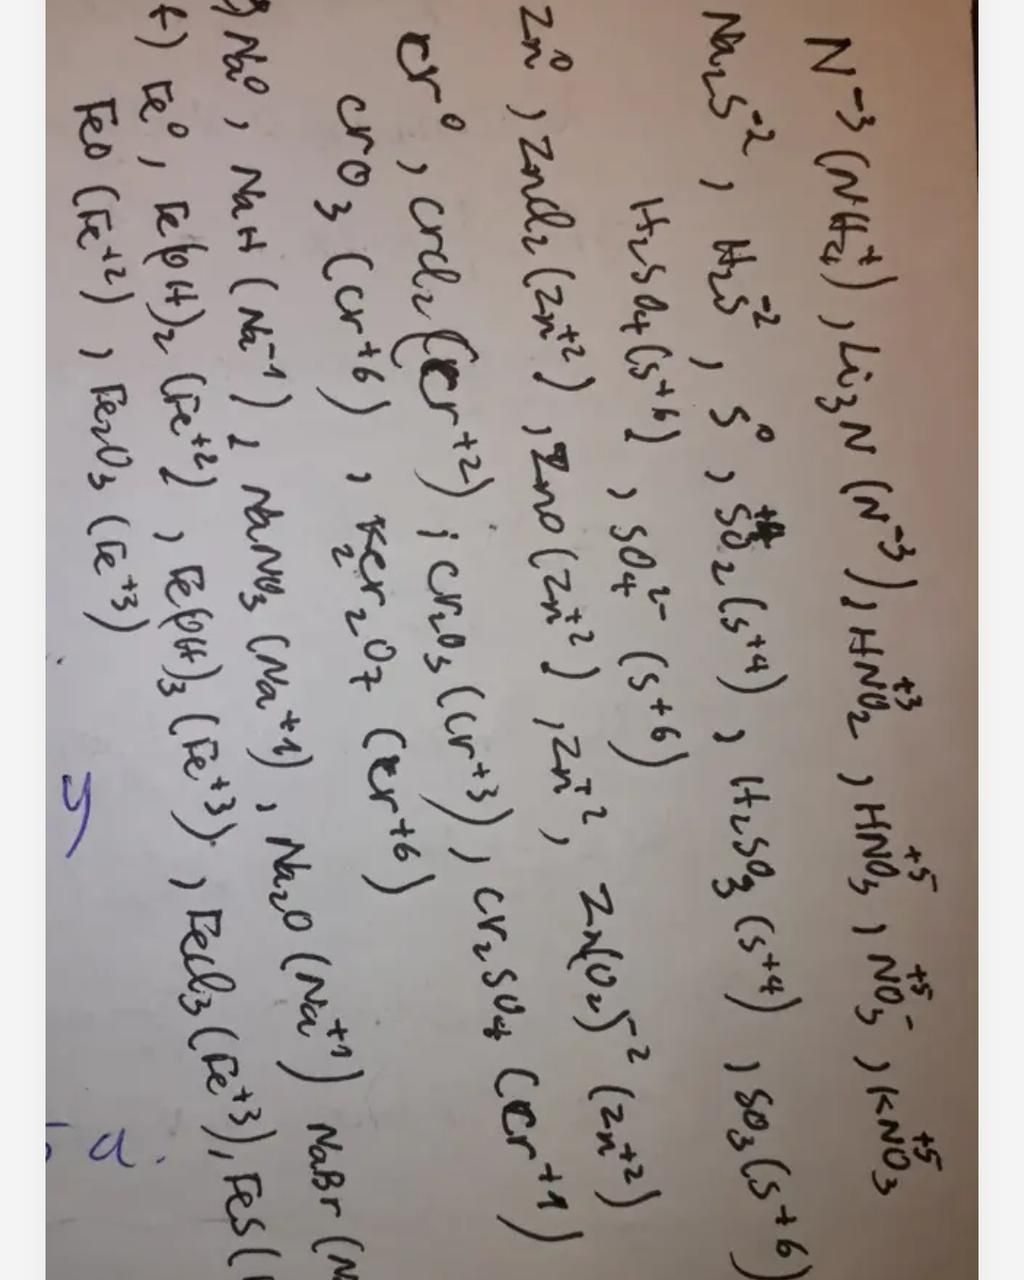 N⁻³ (NH₄⁺), Li₃N (N⁻³), HN⁺³O₂, HN⁺⁵O₃, N⁺⁵O₃⁻, KN⁺⁵O₃
Na₂S⁻², H₂S⁻², S⁰, SO₂ (S⁺⁴), H₂SO₃ (S⁺⁴), SO₃ (S⁺⁶)
H₂SO₄ (S⁺⁶), SO₄²⁻ (S⁺⁶)
Zn⁰, ZnCl₂ (Zn⁺²), ZnO (Zn⁺²), Zn⁺², Zn(O₂)⁻² (Zn⁺²)
Cr⁰, CrCl₂ (Cr⁺²), Cr₂O₃ (Cr⁺³), Cr₂SO₄ (Cr⁺¹)
CrO₃ (Cr⁺⁶), K₂Cr₂O₇ (Cr⁺⁶)
) Na⁰, NaH (Na⁻¹), NaNO₃ (Na⁺¹), Na₂O (Na⁺¹) NaBr (N
t) Fe⁰, Fe(OH)₂ (Fe⁺²), Fe(OH)₃ (Fe⁺³), FeCl₃ (Fe⁺³), FeS (
FeO (Fe⁺²), Fe₂O₃ (Fe⁺³)